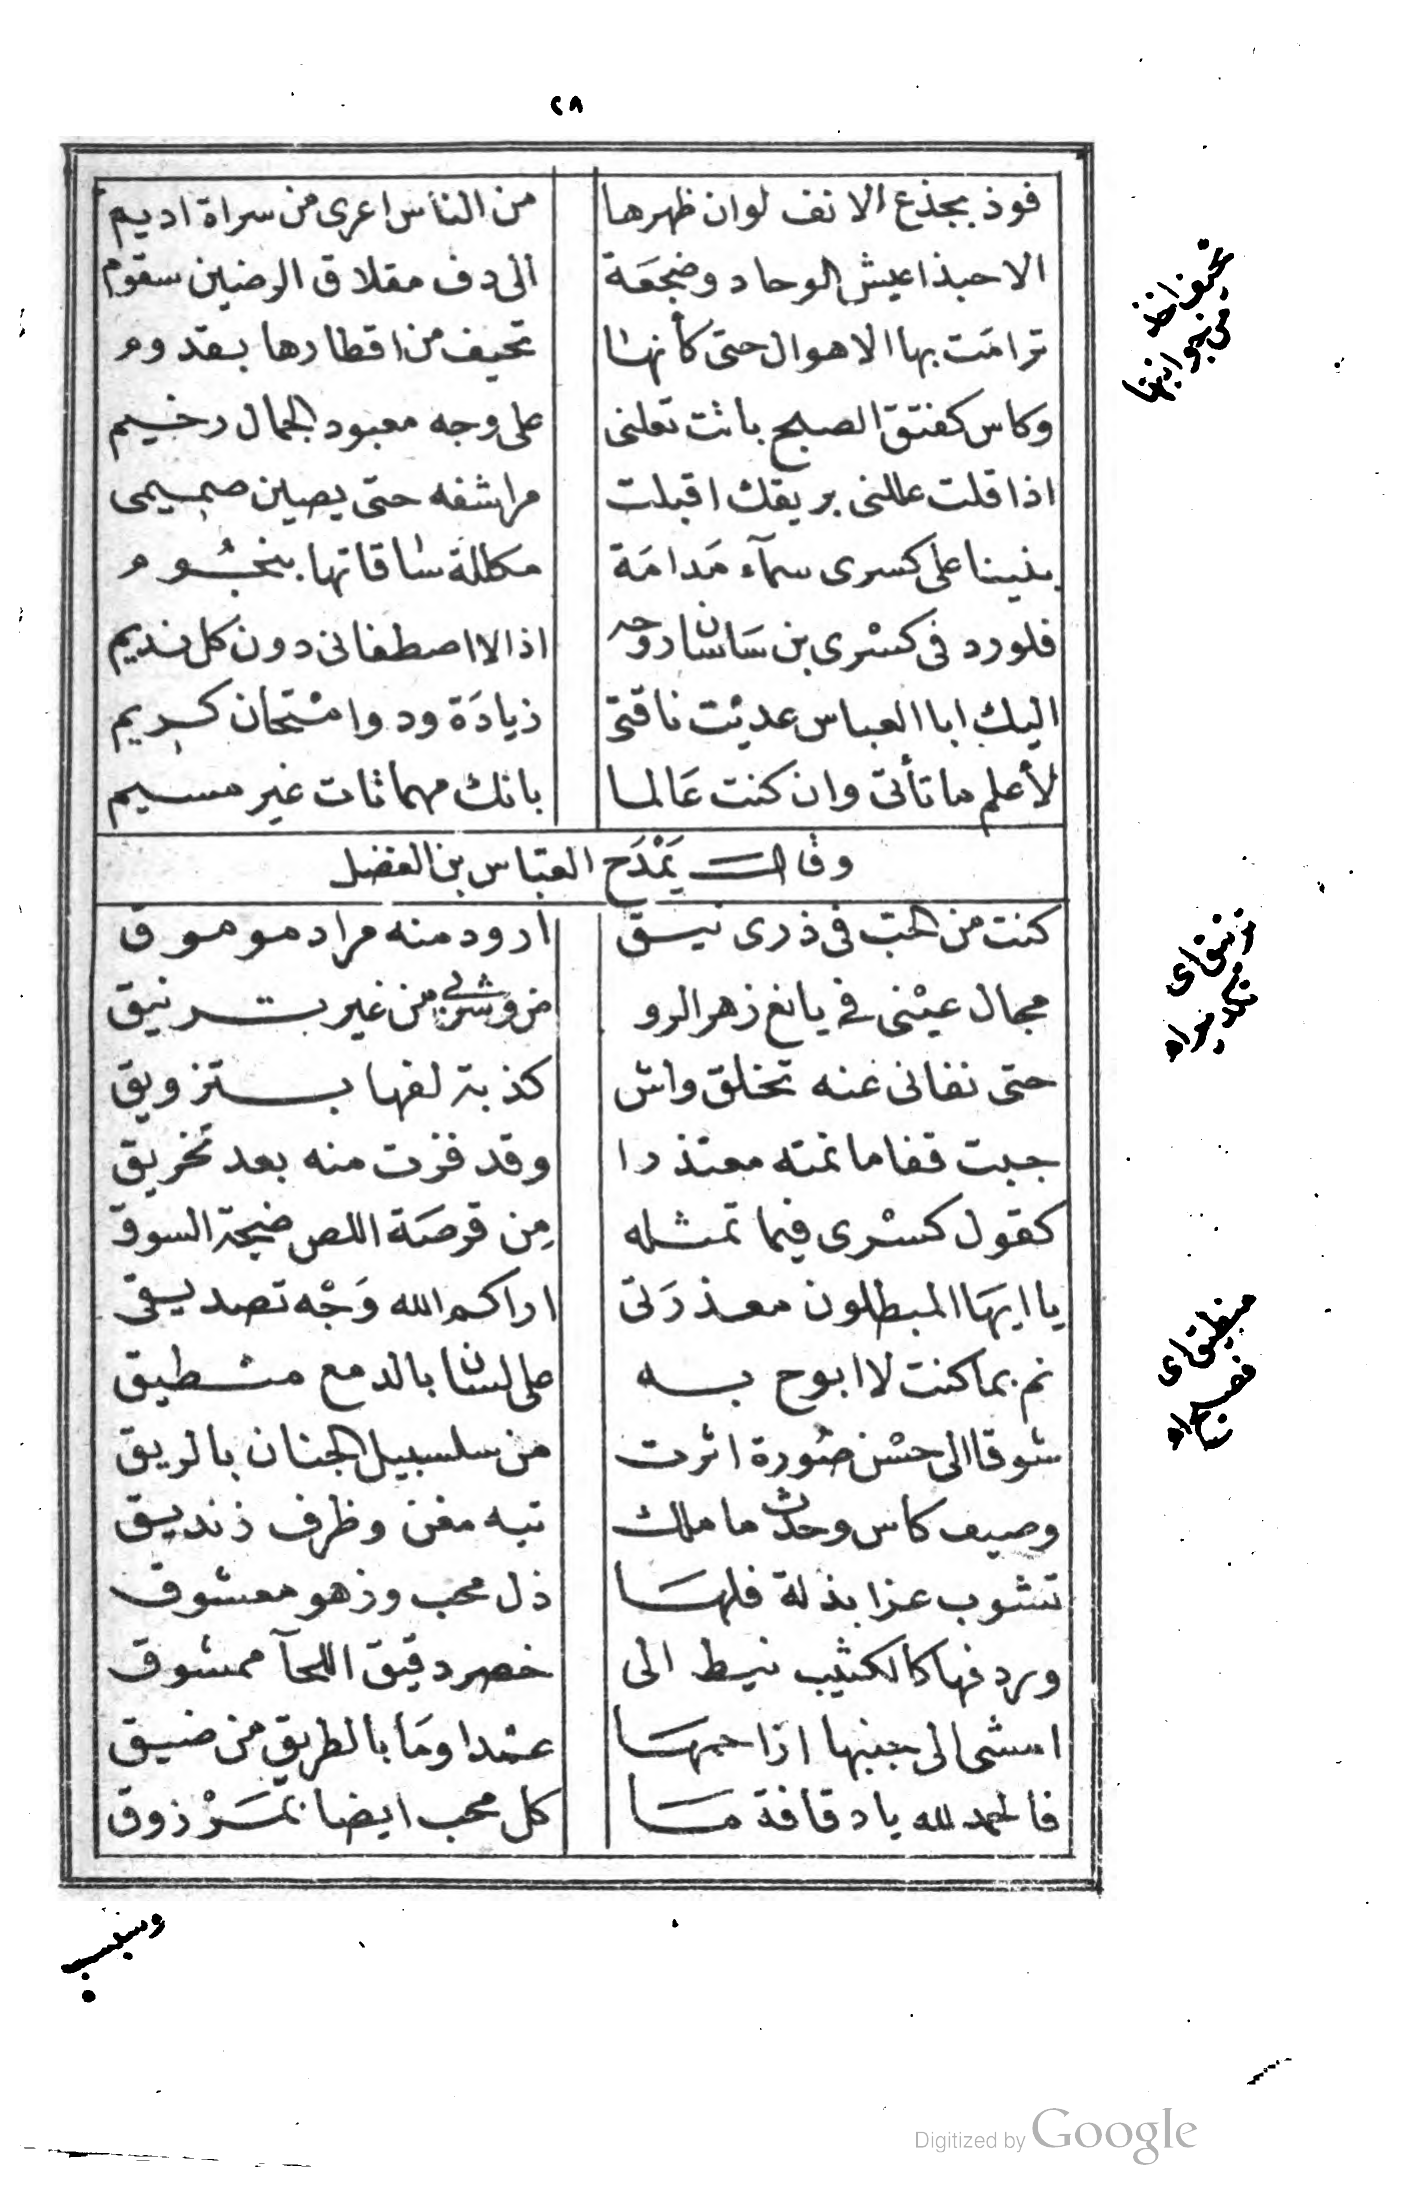 ٢٨
فوذ بجذع الانف لوان ظهرها من الناس اعرى من سراة اديم
الاحبذا عيش الوحاد وضجعة الى دف مقلاق الوضين سقوم
ترامت بها الاهوال حتى كأنها تحيف من اقطارها بقدوم
وكاس كفتق الصبح باتت تعلنى على وجه معبود الجمال رخيم
اذا قلت عللنى بريقك اقبلت مراشفه حتى يصبن صميمى
بنينا على كسرى سمآء مَدامَة مكللة ساقاتها بنجُوم
فلورد فى كسْرى بن سَاسان روحه اذا لا اصطفانى دون كل نديم
اليك ابا العباس عديت ناقتى زيادَة ود وامْتحان كريم
لأعلم ما تأتى وان كنت عَالما بانك مهما تات غير مسيم
وقال يَمْدَح العبّاس بن الفضل
كنت من الحب فى ذرى نيق ارود منه مراد موموق
مجال عيْنى فى يانع زهر الرو ض وشربى من غير ترنيق
حتى نفانى عنه تخلق واش كذبة لفها بتزويق
جبت قفا ما نمته معتذرا وقد فزت منه بعد تخريق
كقول كسْرى فيما تمثله مِن فرصَة اللص ضجة السوق
يا ايهَا المبطلون معذرَتى اراكم الله وَجْه تصديقى
نم بما كنت لا ابوح به على لسان بالدمع منطيق
شوقا الى حسْن صُورة اثرت من سلسبيل الجنان بالريق
وصيف كاس وحدث ما ملك تيه مغن وظرف زنديق
تشوب عزا بذلة فلهَا ذل محب وزهو معشوق
وردفها كالكثيب نيط الى خصر دقيق اللحآ ممشوق
امشى الى جنبها ازاحمهَا عمْدا ومَا بالطريق من ضيق
فالحمد لله يا دقافة مَا كل محب ايضا بمَرْزوق
تحيف اخذ
من جوانبها
ترنيق اى
تكدير اه
منطيق اى
فصيح اه